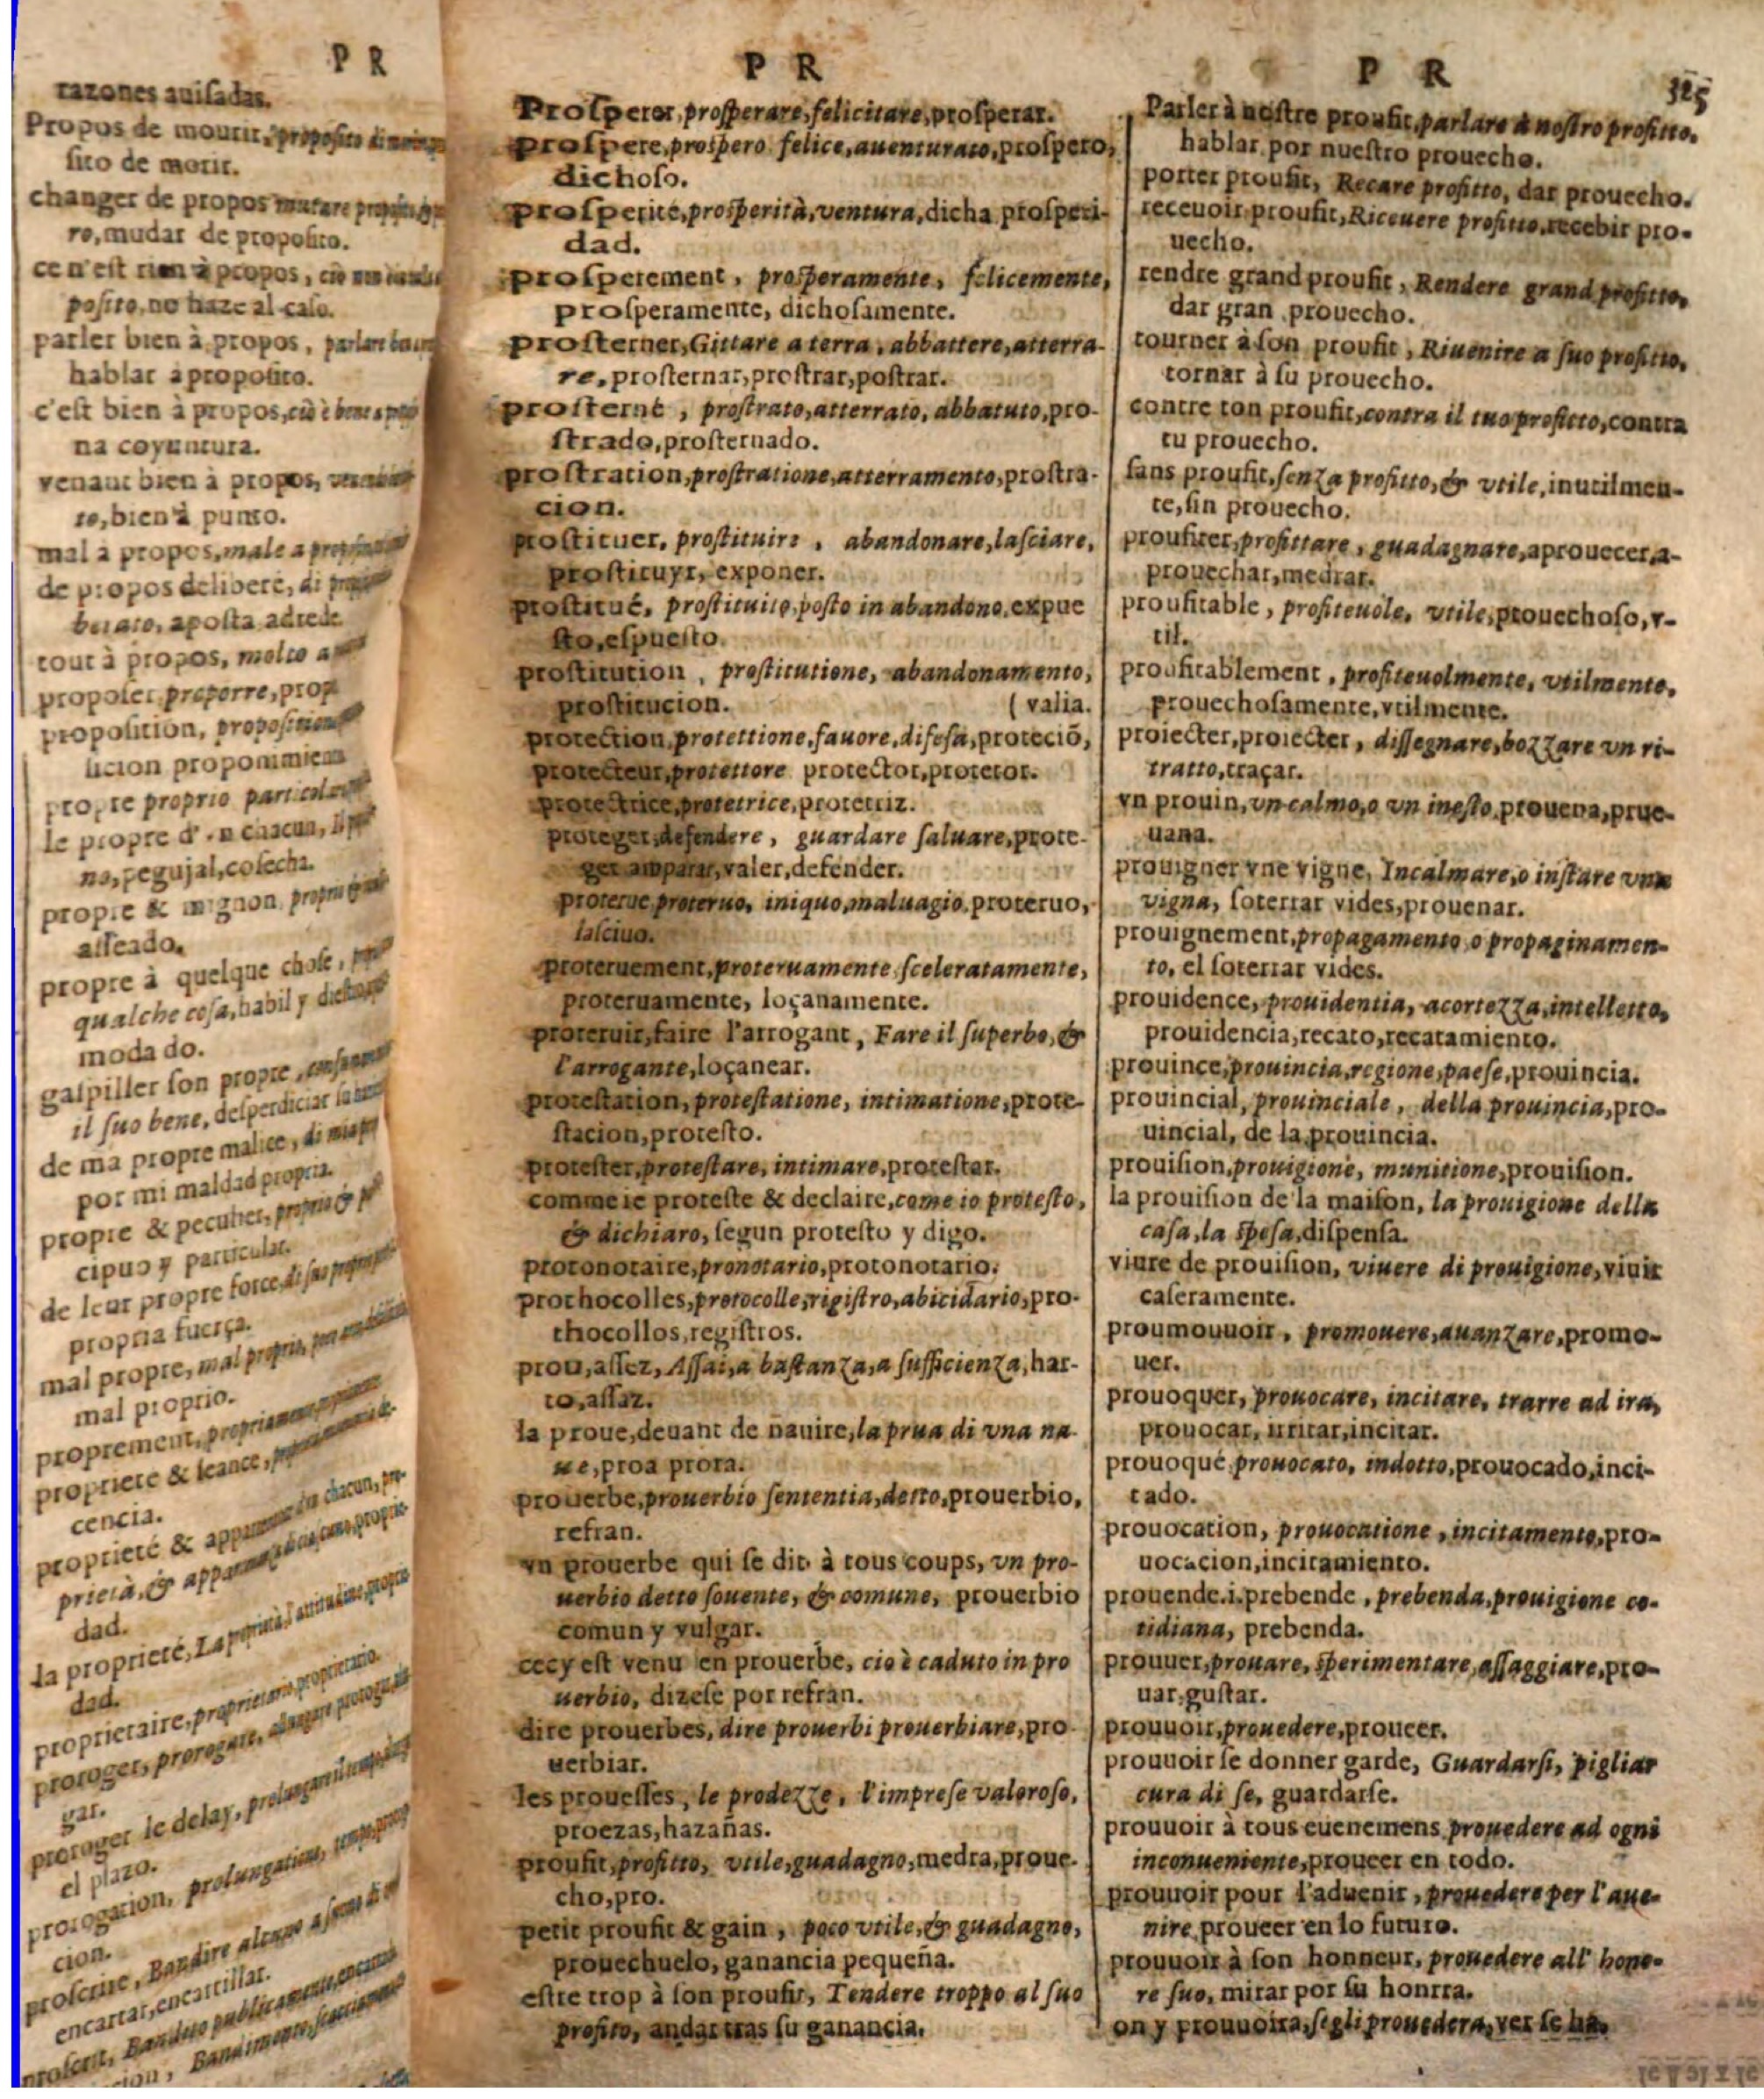 P R
razones auiſadas.
Propos de mourir, propoſito di
ſito de morir.
changer de propos mutare
ro, mudar de propoſito.
ce n'eſt rien à propos, cio non
poſito, no haze al caſo.
parler bien à propos, parlare
hablar a propoſito.
c'eſt bien à propos, ciò è bene a
na coyuntura.
venant bien à propos,
to, bien à punto.
mal a propos, male a
de propos deliberé, di
berato, apoſta adrede
tout à propos, molto a
propoſer preporre, prop
propoſition, propoſition
ſicion proponimien
propre proprio particolar
le propre d'vn chacun, il
no, pegujal, coſecha.
propre & mignon, proprio
aſſeado.
propre à quelque choſe,
qualche coſa, habil y
moda do.
gaſpiller ſon propre,
il ſuo bene, deſperdiciar
de ma propre malice, di mia
por mi maldad propria.
propre & peculier, proprio &
cipuo y particular.
de leur propre force, di ſuo
propria fuerça.
mal propre, mal proprio,
mal proprio.
proprement, propriamente
proprieté & ſeance,
cencia.
proprieté & chacun, pro-
prietà, &
dad.
la proprieté, La proprietà,
dad.
proprietaire, proprietario proprietario.
proroger, prorogare,
gar.
proroger le delay,
el plazo.
prorogation, prolungation,
cion.
proſcrire, Bandire alcuno
encartar, encartillar.
proſcrit, Bandito publicamente,
P R
Proſperer, proſperare, felicitare, proſperar.
proſpere, proſpero felice, auenturato, proſpero,
dichoſo.
proſperité, proſperità, ventura, dicha proſperi-
dad.
proſperement, proſperamente, felicemente,
proſperamente, dichoſamente.
proſterner, Gittare a terra, abbattere, atterra-
re, proſternar, proſtrar, poſtrar.
proſterné, proſtrato, atterrato, abbatuto, pro-
ſtrado, proſternado.
proſtration, proſtratione, atterramento, proſtra-
cion.
proſtituer, proſtituire, abandonare, laſciare,
proſtituyr, exponer.
proſtitué, proſtituito, poſto in abandono, expue
ſto, eſpueſto.
proſtitution, proſtitutione, abandonamento,
proſtitucion. ( valia.
protection, protettione, fauore, difeſa, proteciō,
protecteur, protettore protector, protetor.
protectrice, protetrice, protetriz.
proteger, defendere, guardare ſaluare, prote-
ger amparar, valer, defender.
proterue proteruo, iniquo, maluagio, proteruo,
laſciuo.
proteruement, proteruamente, ſceleratamente,
proteruamente, loçanamente.
proteruir, faire l'arrogant, Fare il ſuperbo, &
l'arrogante, loçanear.
proteſtation, proteſtatione, intimatione, prote-
ſtacion, proteſto.
proteſter, proteſtare, intimare, proteſtar.
comme ie proteſte & declaire, come io proteſto,
& dichiaro, ſegun proteſto y digo.
protonotaire, pronotario, protonotario.
prothocolles, protocolle, rigiſtro, abicidario, pro-
thocollos, regiſtros.
prou, aſſez, Aſſai, a baſtanza, a ſufficienza, har-
to, aſſaz.
la proue, deuant de nauire, la prua di vna na-
ue, proa prora.
prouerbe, prouerbio ſententia, detto, prouerbio,
refran.
vn prouerbe qui ſe dit à tous coups, vn pro-
uerbio detto ſouente, & comune, prouerbio
comun y vulgar.
cecy eſt venu en prouerbe, cio è caduto in pro
uerbio, dizeſe por refran.
dire prouerbes, dire prouerbi prouerbiare, pro-
uerbiar.
les proueſſes, le prodezze, l'impreſe valoroſe,
proezas, hazañas.
proufit, profitto, vtile, guadagno, medra, proue-
cho, pro.
petit proufit & gain, poco vtile, & guadagno,
prouechuelo, ganancia pequeña.
eſtre trop à ſon proufit, Tendere troppo al ſuo
profito, andar tras ſu ganancia.
P R 325
Parler à noſtre proufit, parlare à noſtro profitto,
hablar por nueſtro prouecho.
porter proufit, Recare profitto, dar prouecho.
receuoir proufit, Riceuere profitto, recebir pro-
uecho.
rendre grand proufit, Rendere grand profitto,
dar gran prouecho.
tourner à ſon proufit, Riuenire a ſuo profitto,
tornar à ſu prouecho.
contre ton proufit, contra il tuo profitto, contra
tu prouecho.
ſans proufit, ſenza profitto, & vtile, inutilmen-
te, ſin prouecho.
proufiter, profittare, guadagnare, aprouecer, a-
prouechar, medrar.
proufitable, profiteuole, vtile, prouechoſo, v-
til.
proufitablement, profiteuolmente, vtilmente,
prouechoſamente, vtilmente.
proiecter, proiecter, diſſegnare, bozzare vn ri-
tratto, traçar.
vn prouin, vn calmo, o vn ineſto, prouena, prue-
uana.
prouigner vne vigne, Incalmare, o inſtare vna
vigna, ſoterrar vides, prouenar.
prouignement, propagamento o propaginamen-
to, el ſoterrar vides.
prouidence, prouidentia, acortezza, intelletto,
prouidencia, recato, recatamiento.
prouince, prouincia, regione, paeſe, prouincia.
prouincial, prouinciale, della prouincia, pro-
uincial, de la prouincia.
prouiſion, prouigione, munitione, prouiſion.
la prouiſion de la maiſon, la prouigione della
caſa, la ſpeſa, diſpenſa.
viure de prouiſion, viuere di prouigione, viuir
caſeramente.
proumouuoir, promouere, auanzare, promo-
uer.
prouoquer, prouocare, incitare, trarre ad ira,
prouocar, irritar, incitar.
prouoqué, prouocato, indotto, prouocado, inci-
tado.
prouocation, prouocatione, incitamento, pro-
uocacion, incitamiento.
prouende .i. prebende, prebenda, prouigione co-
tidiana, prebenda.
prouuer, prouare, ſperimentare, aſſaggiare, pro-
uar, guſtar.
prouuoir, prouedere, proueer.
prouuoir ſe donner garde, Guardarſi, pigliar
cura di ſe, guardarſe.
prouuoir à tous euenemens prouedere ad ogni
inconueniente, proueer en todo.
prouuoir pour l'aduenir, prouedere per l'aue-
nire, proueer en lo futuro.
prouuoir à ſon honneur, prouedere all' hono-
re ſuo, mirar por ſu honrra.
on y prouuoira, ſegli prouedera, ver ſe ha.